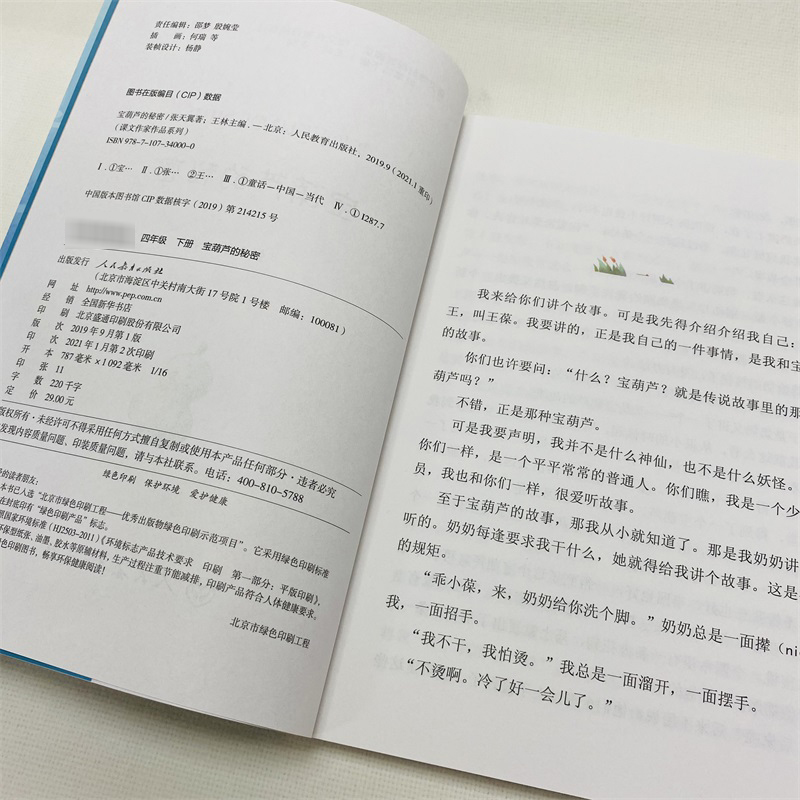 责任编辑：邵梦 殷婉莹
插 画：何瑞 等
装帧设计：杨静
图书在版编目（CIP）数据
宝葫芦的秘密/张天翼著；王林主编．—北京：人民教育出版社，2019.9（2021.1重印）
（课文作家作品系列）
ISBN 978-7-107-34000-0
Ⅰ．①宝… Ⅱ．①张… ②王… Ⅲ．①童话－中国－当代 Ⅳ．①I287.7
中国版本图书馆CIP数据核字（2019）第214215号
四年级 下册 宝葫芦的秘密
出版发行 人民教育出版社
（北京市海淀区中关村南大街17号院1号楼 邮编：100081）
网 址 http://www.pep.com.cn
经 销 全国新华书店
印 刷 北京盛通印刷股份有限公司
版 次 2019年9月第1版
印 次 2021年1月第2次印刷
开 本 787毫米×1092毫米 1/16
印 张 11
字 数 220千字
定 价 29.00元
版权所有·未经许可不得采用任何方式擅自复制或使用本产品任何部分·违者必究
发现内容质量问题、印装质量问题，请与本社联系。电话：400-810-5788
绿色印刷 保护环境 爱护健康
的读者朋友：
本书已入选“北京市绿色印刷工程——优秀出版物绿色印刷示范项目”。它采用绿色印刷标准
在封底印有“绿色印刷产品”标志。
国家环境标准（HJ2503-2011）《环境标志产品技术要求 印刷 第一部分：平版印刷》，
环保型纸张、油墨、胶水等原辅材料，生产过程注重节能减排，印刷产品符合人体健康要求。
绿色印刷图书，畅享环保健康阅读！
北京市绿色印刷工程
一
我来给你们讲个故事。可是我先得介绍介绍我自己：
王，叫王葆。我要讲的，正是我自己的一件事情，是我和宝
的故事。
你们也许要问：“什么？宝葫芦？就是传说故事里的那
葫芦吗？”
不错，正是那种宝葫芦。
可是我要声明，我并不是什么神仙，也不是什么妖怪。
你们一样，是一个平平常常的普通人。你们瞧，我是一个少
员，我也和你们一样，很爱听故事。
至于宝葫芦的故事，那我从小就知道了。那是我奶奶讲
听的。奶奶每逢要求我干什么，她就得给我讲个故事。这是
的规矩。
“乖小葆，来，奶奶给你洗个脚。”奶奶总是一面撵（ni
我，一面招手。
“我不干，我怕烫。”我总是一面溜开，一面摆手。
“不烫啊。冷了好一会儿了。”